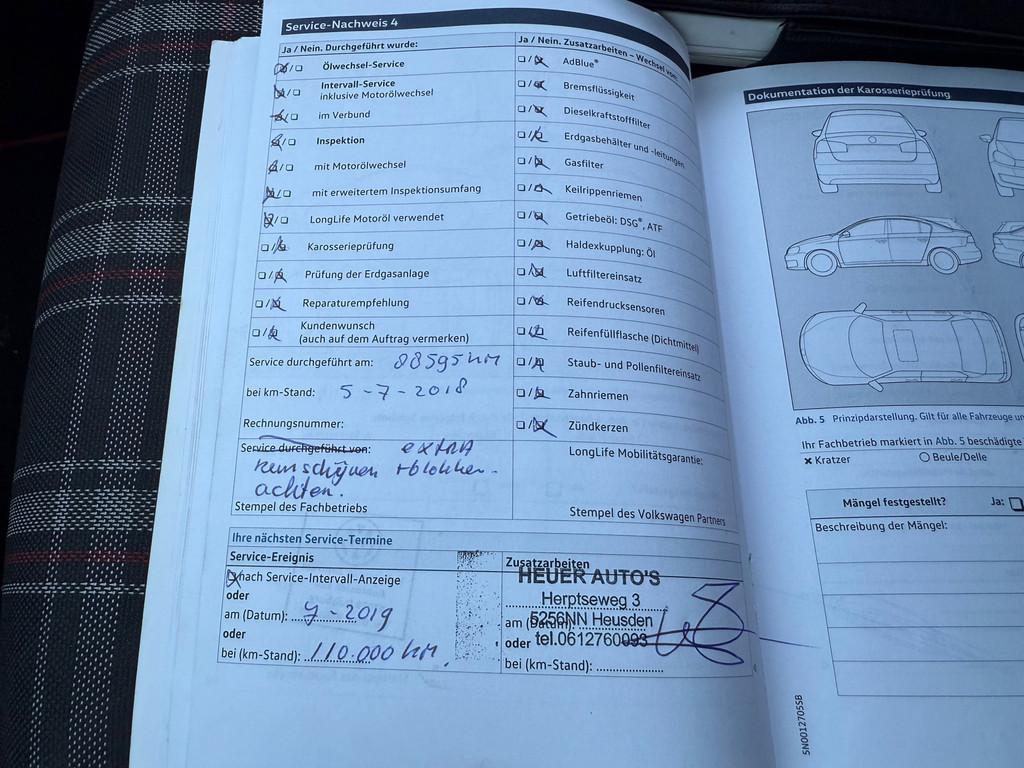 Service-Nachweis 4
Ja / Nein. Durchgeführt wurde:
Ölwechsel-Service
Intervall-Service
inklusive Motorölwechsel
im Verbund
Inspektion
mit Motorölwechsel
mit erweitertem Inspektionsumfang
LongLife Motoröl verwendet
Karosserieprüfung
Prüfung der Erdgasanlage
Reparaturempfehlung
Kundenwunsch
(auch auf dem Auftrag vermerken)
Service durchgeführt am: 88595 km
bei km-Stand: 5-7-2018
Rechnungsnummer:
Service durchgeführt von: extra
remschijven + blokken
achter.
Stempel des Fachbetriebs
Ja / Nein. Zusatzarbeiten – Wechsel von:
AdBlue®
Bremsflüssigkeit
Dieselkraftstofffilter
Erdgasbehälter und -leitungen
Gasfilter
Keilrippenriemen
Getriebeöl: DSG®, ATF
Haldexkupplung: Öl
Luftfiltereinsatz
Reifendrucksensoren
Reifenfüllflasche (Dichtmittel)
Staub- und Pollenfiltereinsatz
Zahnriemen
Zündkerzen
LongLife Mobilitätsgarantie:
Stempel des Volkswagen Partners
Ihre nächsten Service-Termine
Service-Ereignis
nach Service-Intervall-Anzeige
oder
am (Datum): 7-2019
oder
bei (km-Stand): 110.000 km.
Zusatzarbeiten
HEUER AUTO'S
Herptseweg 3
am (Datum): 5256NN Heusden
oder tel.0612760093
bei (km-Stand):
Dokumentation der Karosserieprüfung
Abb. 5 Prinzipdarstellung. Gilt für alle Fahrzeuge
Ihr Fachbetrieb markiert in Abb. 5 beschädigte
x Kratzer O Beule/Delle
Mängel festgestellt? Ja:
Beschreibung der Mängel:
5N0012705SB